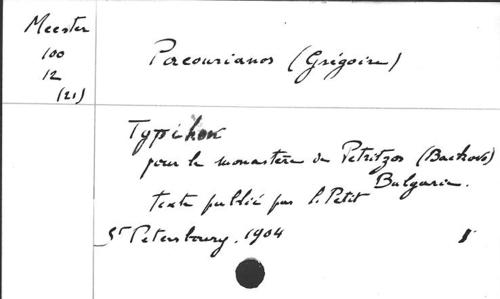 Meester
100
12
(21)
Pacourianos (Grégoire)
Typikon
pour le monastère de Petritzos (Backovo)
Bulgarie.
texte publié par L. Petit
St Petersbourg, 1904